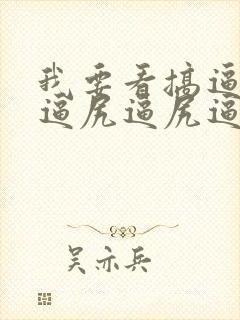 我要看搞逼
逼尻逼尻逼
吴亦兵